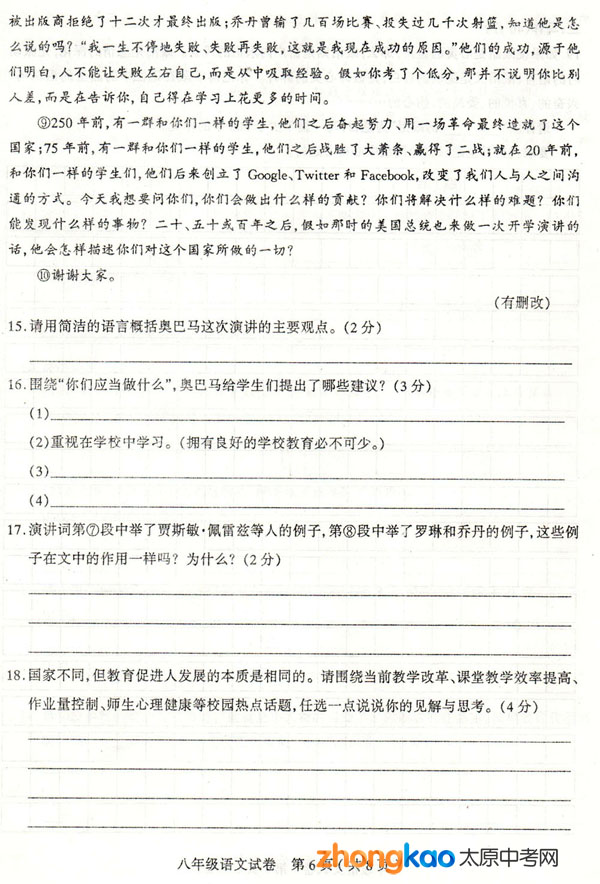 被出版商拒绝了十二次才最终出版;乔丹曾输了几百场比赛、投失过几千次射篮,知道他是怎
么说的吗?“我一生不停地失败、失败再失败,这就是我现在成功的原因。”他们的成功,源于他
们明白,人不能让失败左右自己,而是从中吸取经验。假如你考了个低分,那并不说明你比别
人差,而是在告诉你,自己得在学习上花更多的时间。
⑨250年前,有一群和你们一样的学生,他们之后奋起努力、用一场革命最终造就了这个
国家;75年前,有一群和你们一样的学生,他们之后战胜了大萧条、赢得了二战;就在20年前,
和你们一样的学生们,他们后来创立了Google、Twitter和Facebook,改变了我们人与人之间沟
通的方式。今天我想要问你们,你们会做出什么样的贡献?你们将解决什么样的难题?你们
能发现什么样的事物?二十、五十或百年之后,假如那时的美国总统也来做一次开学演讲的
话,他会怎样描述你们对这个国家所做的一切?
⑩谢谢大家。
(有删改)
15.请用简洁的语言概括奥巴马这次演讲的主要观点。(2分)
16.围绕“你们应当做什么”,奥巴马给学生们提出了哪些建议?(3分)
(1)
(2)重视在学校中学习。(拥有良好的学校教育必不可少。)
(3)
(4)
17.演讲词第⑦段中举了贾斯敏·佩雷兹等人的例子,第⑧段中举了罗琳和乔丹的例子,这些例
子在文中的作用一样吗?为什么?(2分)
18.国家不同,但教育促进人发展的本质是相同的。请围绕当前教学改革、课堂教学效率提高、
作业量控制、师生心理健康等校园热点话题,任选一点说说你的见解与思考。(4分)
八年级语文试卷 第6页(共8页)
zhongkao 太原中考网